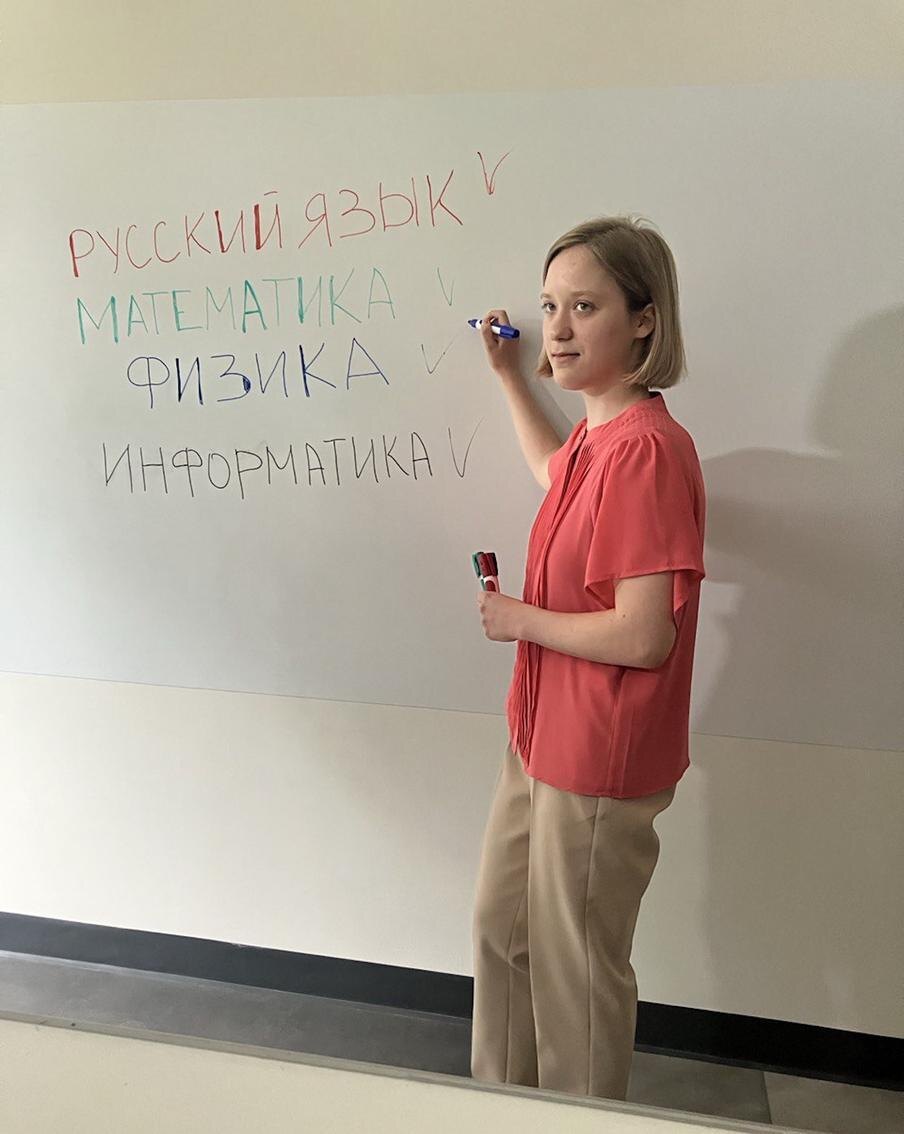 РУССКИЙ ЯЗЫК ✓
МАТЕМАТИКА ✓
ФИЗИКА ✓
ИНФОРМАТИКА ✓